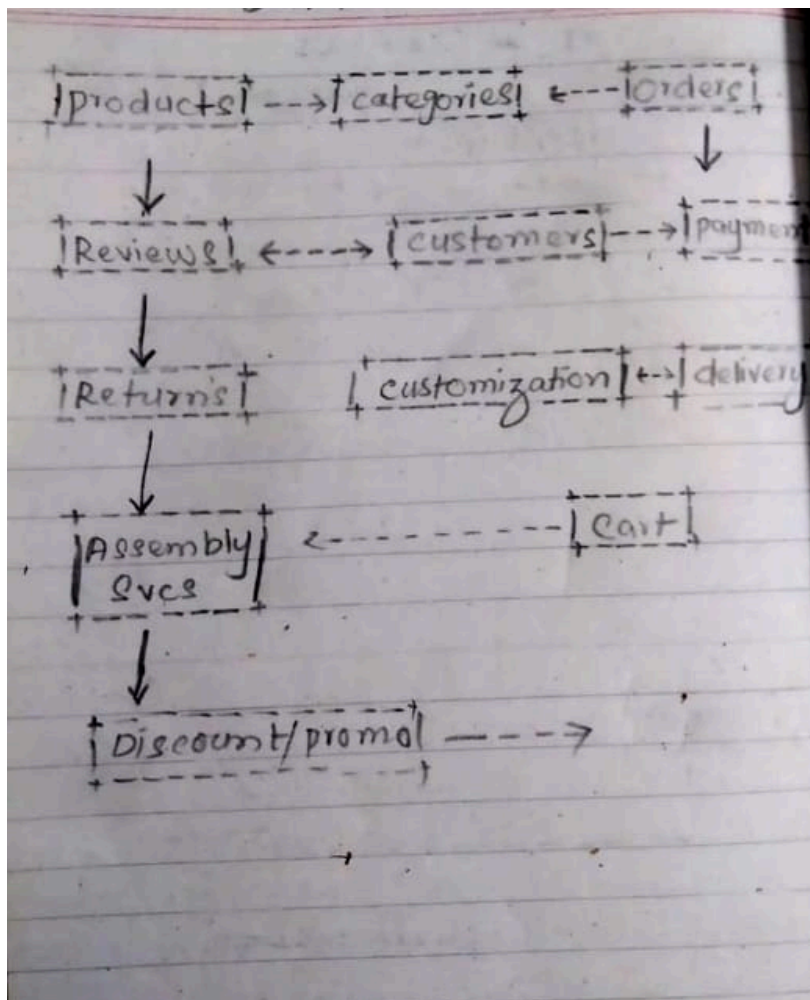 products categories orders
Reviews customers paymen
Returns customization delivery
Assembly cart
Svcs
Discount/promo